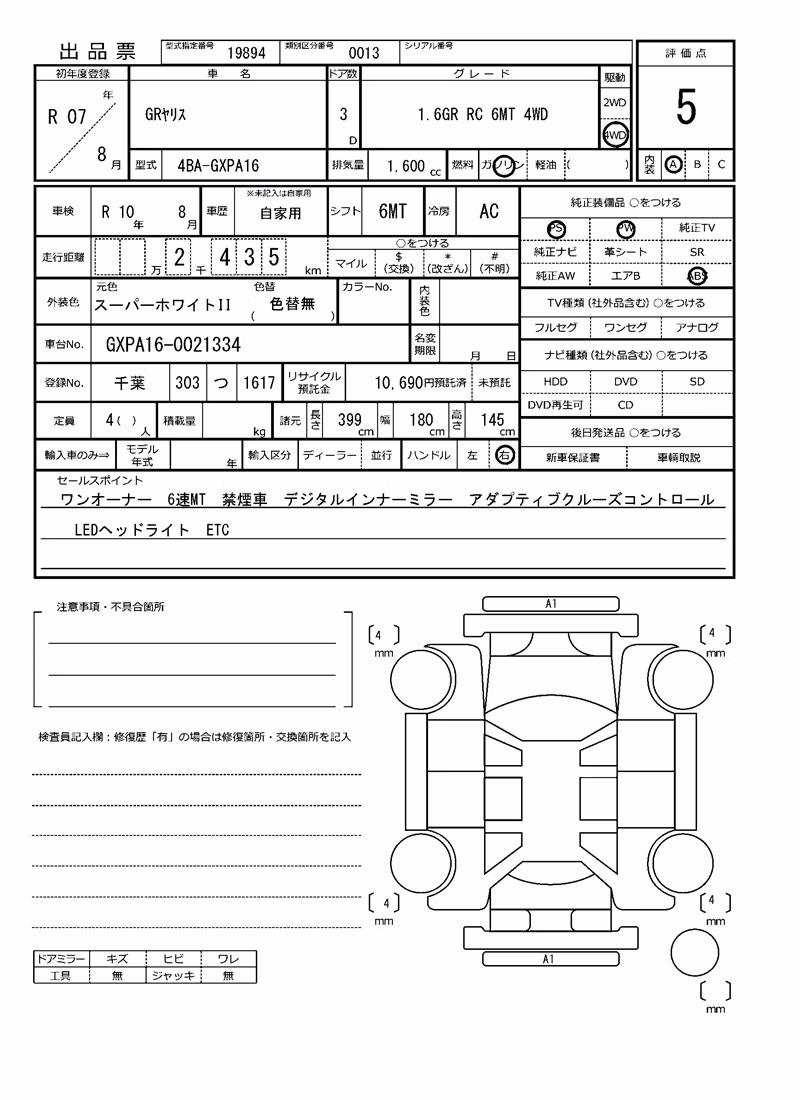 出品票 型式指定番号 19894 類別区分番号 0013 シリアル番号
評価点
初年度登録 車名 ドア数 グレード 駆動
R 07 年 8 月 GRヤリス 3 D 1.6GR RC 6MT 4WD 2WD 4WD
5
型式 4BA-GXPA16 排気量 1,600 cc 燃料 ガソリン 軽油 ( )
内装 A B C
車検 R 10 年 8 月 車歴 ※未記入は自家用 自家用 シフト 6MT 冷房 AC
走行距離 万 2 千 4 3 5 km ○をつける マイル $ (交換) * (改ざん) # (不明)
外装色 元色 スーパーホワイトII 色替 ( 色替無 ) カラーNo. 内装色
車台No. GXPA16-0021334 名変期限 月 日
登録No. 千葉 303 つ 1617 リサイクル預託金 10,690円預託済 未預託
定員 4 ( ) 人 積載量 kg 諸元 長さ 399 cm 幅 180 cm 高さ 145 cm
輸入車のみ⇒ モデル年式 年 輸入区分 ディーラー 並行 ハンドル 左 右
純正装備品 ○をつける
PS PW 純正TV
純正ナビ 革シート SR
純正AW エアB ABS
TV種類(社外品含む) ○をつける
フルセグ ワンセグ アナログ
ナビ種類(社外品含む) ○をつける
HDD DVD SD
DVD再生可 CD
後日発送品 ○をつける
新車保証書 車輌取説
セールスポイント
ワンオーナー 6速MT 禁煙車 デジタルインナーミラー アダプティブクルーズコントロール
LEDヘッドライト ETC
注意事項・不具合箇所
検査員記入欄：修復歴「有」の場合は修復箇所・交換箇所を記入
ドアミラー キズ ヒビ ワレ
工具 無 ジャッキ 無
A1
[ 4 ] mm [ 4 ] mm
[ 4 ] mm [ 4 ] mm
A1
[ ] mm